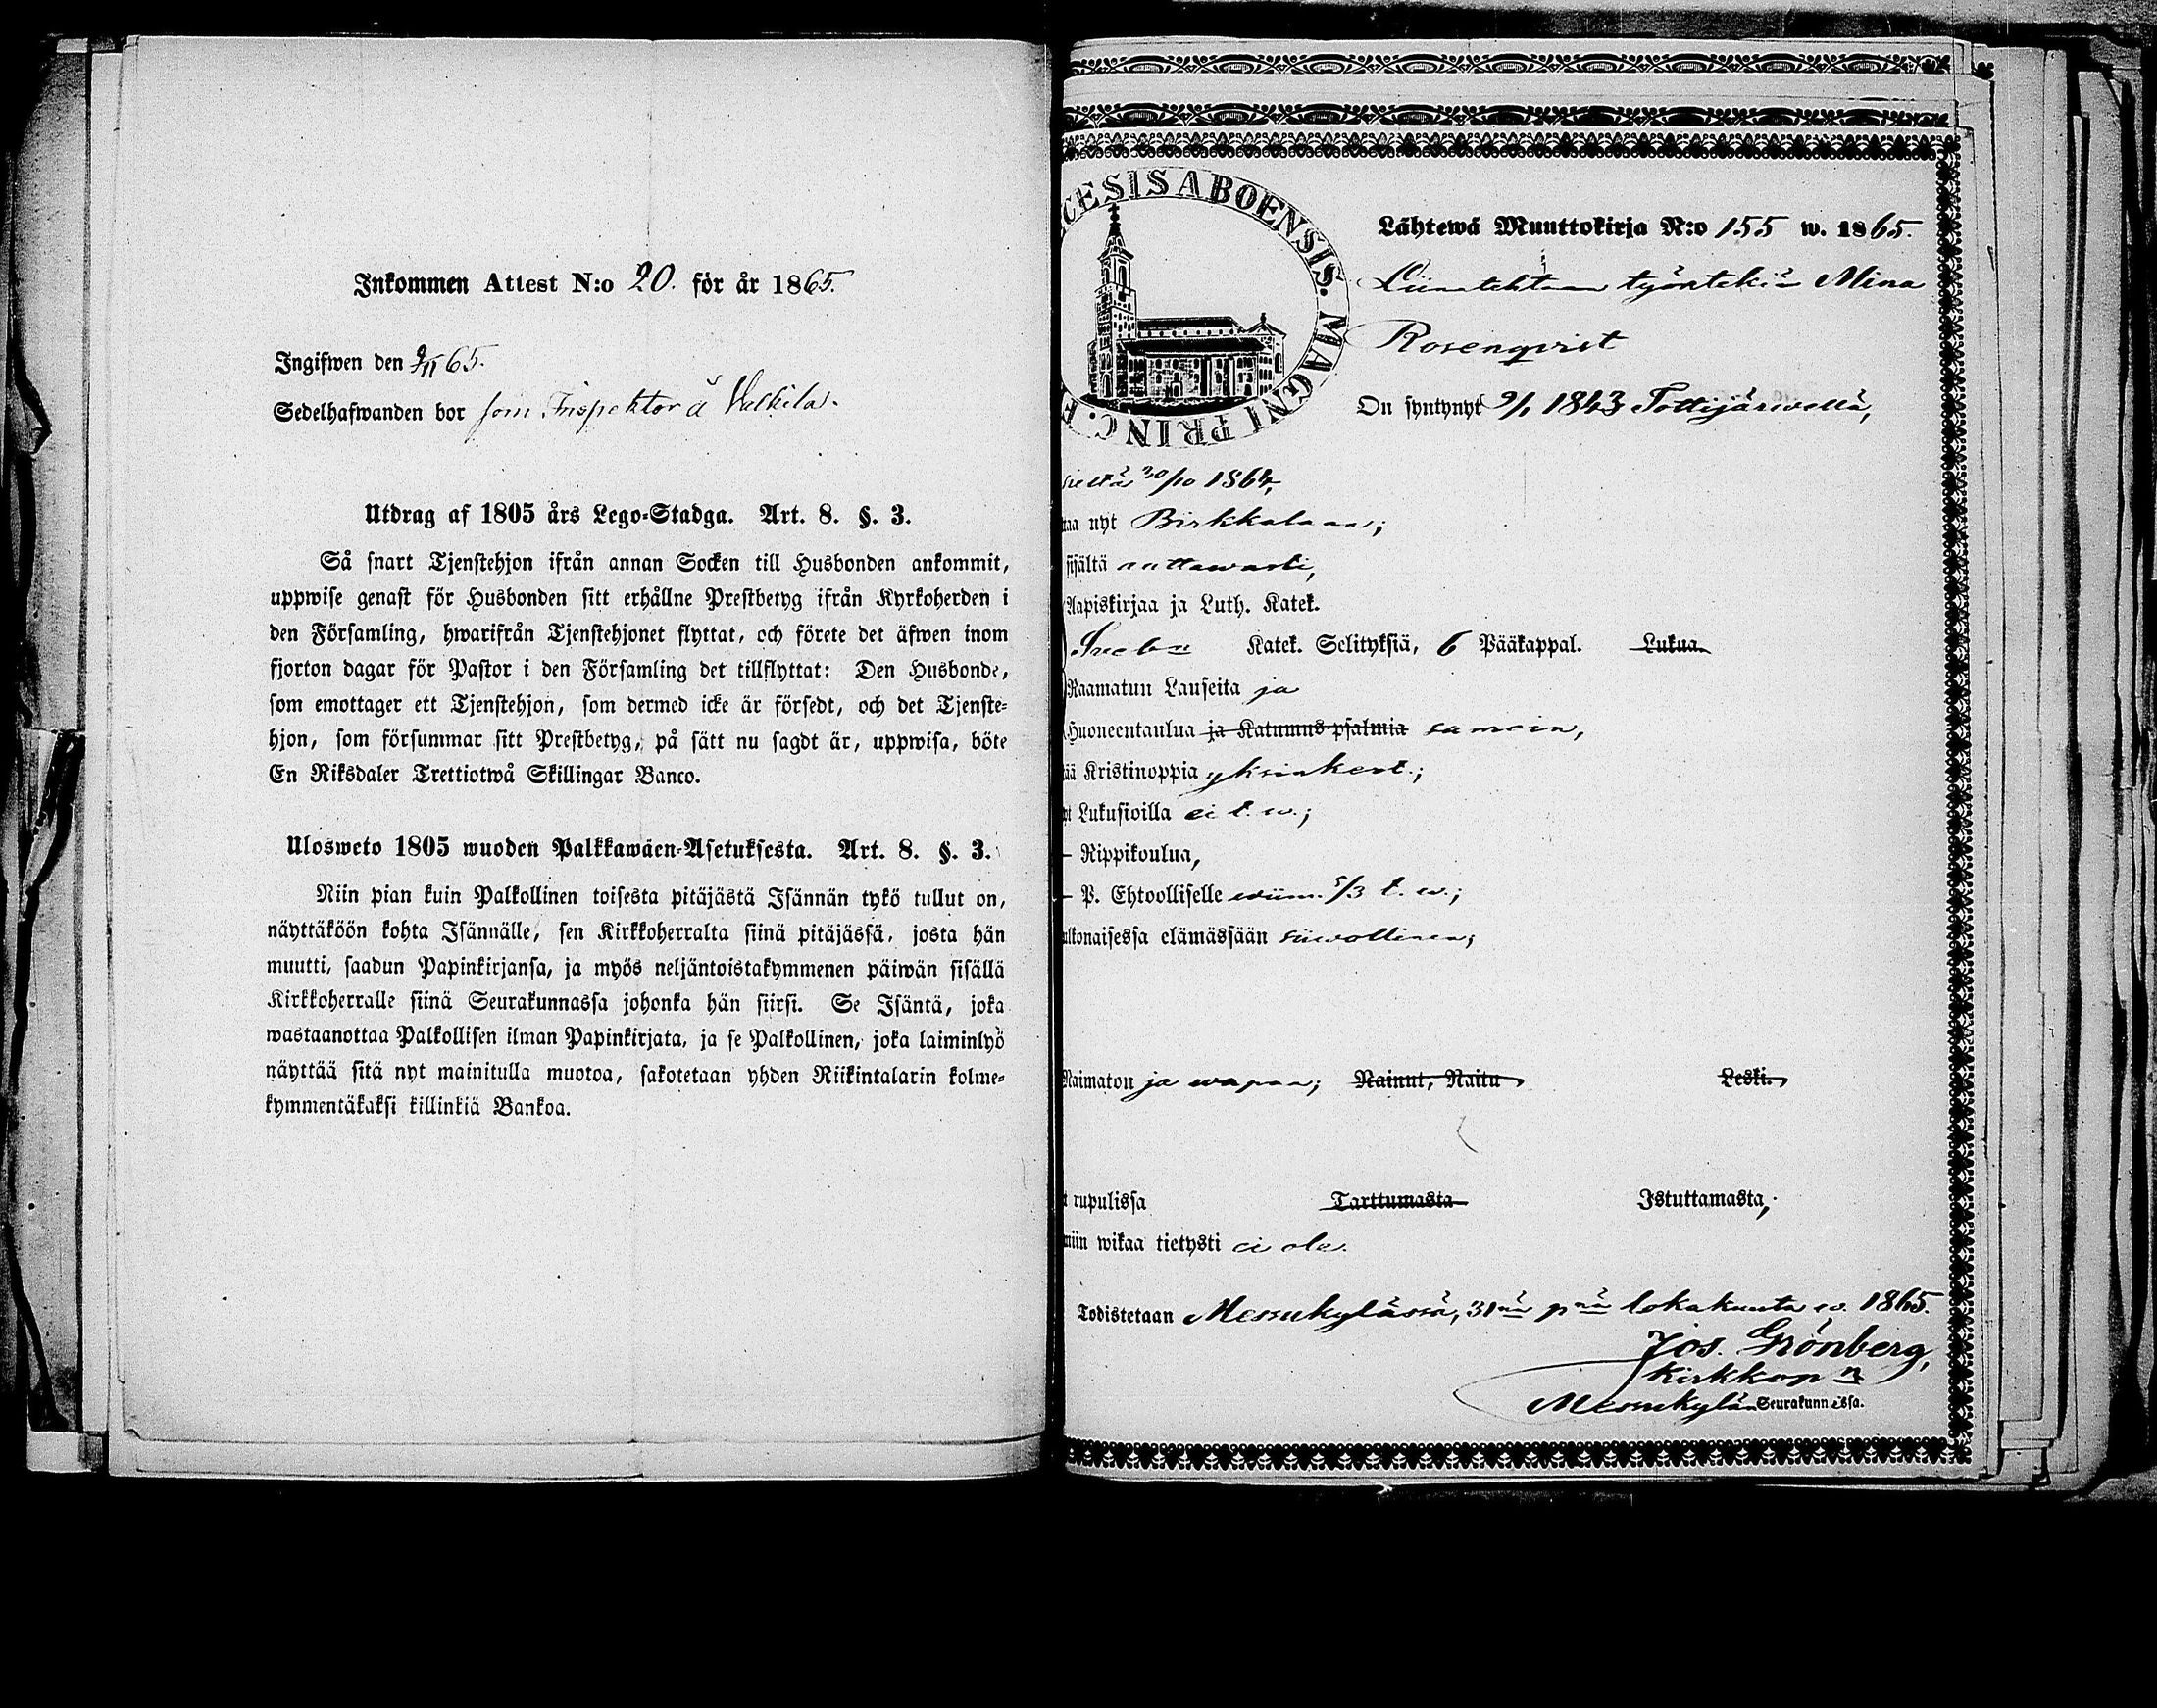 Inkommen Attest N:o 20. för år 1865.
Ingifwen den 2/11 65.
Sedelhafwanden bor som Inspektor å Valkila.
Utdrag af 1805 års Lego-Stadga. Art. 8. §. 3.
Så snart Tjenstehjon ifrån annan Socken till Husbonden ankommit,
uppwise genast för Husbonden sitt erhållne Prestbetyg ifrån Kyrkoherden i
den Församling, hwarifrån Tjenstehjonet flyttat, och förete det äfwen inom
fjorton dagar för Pastor i den Församling det tillflyttat: Den Husbonde,
som emottager ett Tjenstehjon, som dermed icke är försedt, och det Tjenste-
hjon, som försummar sitt Prestbetyg, på sätt nu sagdt är, uppwisa, böte
En Riksdaler Trettiotwå Skillingar Banco.
Ulosweto 1805 wuoden Palkkawäen-Asetuksesta. Art. 8. §. 3.
Niin pian kuin Palkollinen toisesta pitäjästä Isännän tykö tullut on,
näyttäköön kohta Isännälle, sen Kirkkoherralta siinä pitäjässä, josta hän
muutti, saadun Papinkirjansa, ja myös neljäntoistakymmenen päiwän sisällä
Kirkkoherralle siinä Seurakunnassa johonka hän siirsi. Se Isäntä, joka
wastaanottaa Palkollisen ilman Papinkirjata, ja se Palkollinen, joka laiminlyö
näyttää sitä nyt mainitulla muotoa, sakotetaan yhden Riikintalarin kolme-
kymmentäkaksi killinkiä Bankoa.
CESIS ABOENSIS. MAGNI PRINC. F
Lähtewä Muuttokirja N:o 155 w. 1865.
työntekiä Mina
Rosenqvist
On syntynyt 9/1 1843 Tottijärwellä,
30/10 1864,
taa nyt Birkkalaan;
sisältä auttawasti,
Aapiskirjaa ja Luth. Katek.
Katek. Selityksiä, 6 Pääkappal. Lukua.
Raamatun Lauseita ja
Huoneentaulua ja Katumus-psalmia samoin,
ää Kristinoppia yksinkert.;
yt Lukusioilla ei t. w.;
— Rippikoulua,
— P. Ehtoolliselle wiim. 5/3 t. w.;
ulkonaisessa elämässään siiwollinen;
Naimaton ja wapaa; Nainut, Naitu Leski.
t rupulissa Tarttumasta Istuttamasta,
miin wikaa tietysti ei ole.
Todistetaan Messukylässä, 31nä pnä lokakuuta w. 1865.
Jos. Grönberg,
Kirkkop n
Messukylän Seurakunnissa.